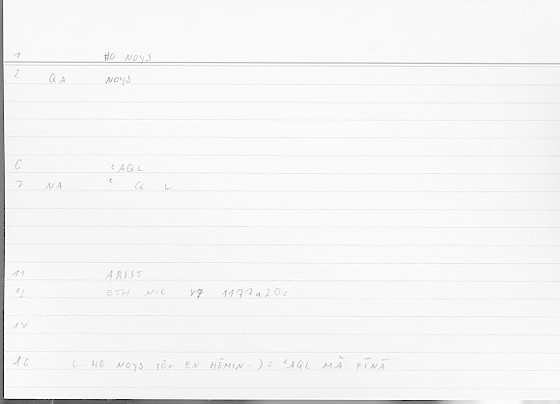 1 HO NOYS
2 QA NOYS
6 ʿAQL
7 NA ʿ Q L
11 ARIST
12 ETH NIC X7 1177a20:
14
16 (-- HO NOYS TŌN EN HĒMIN --) = ʿAQL MĀ FĪNĀ